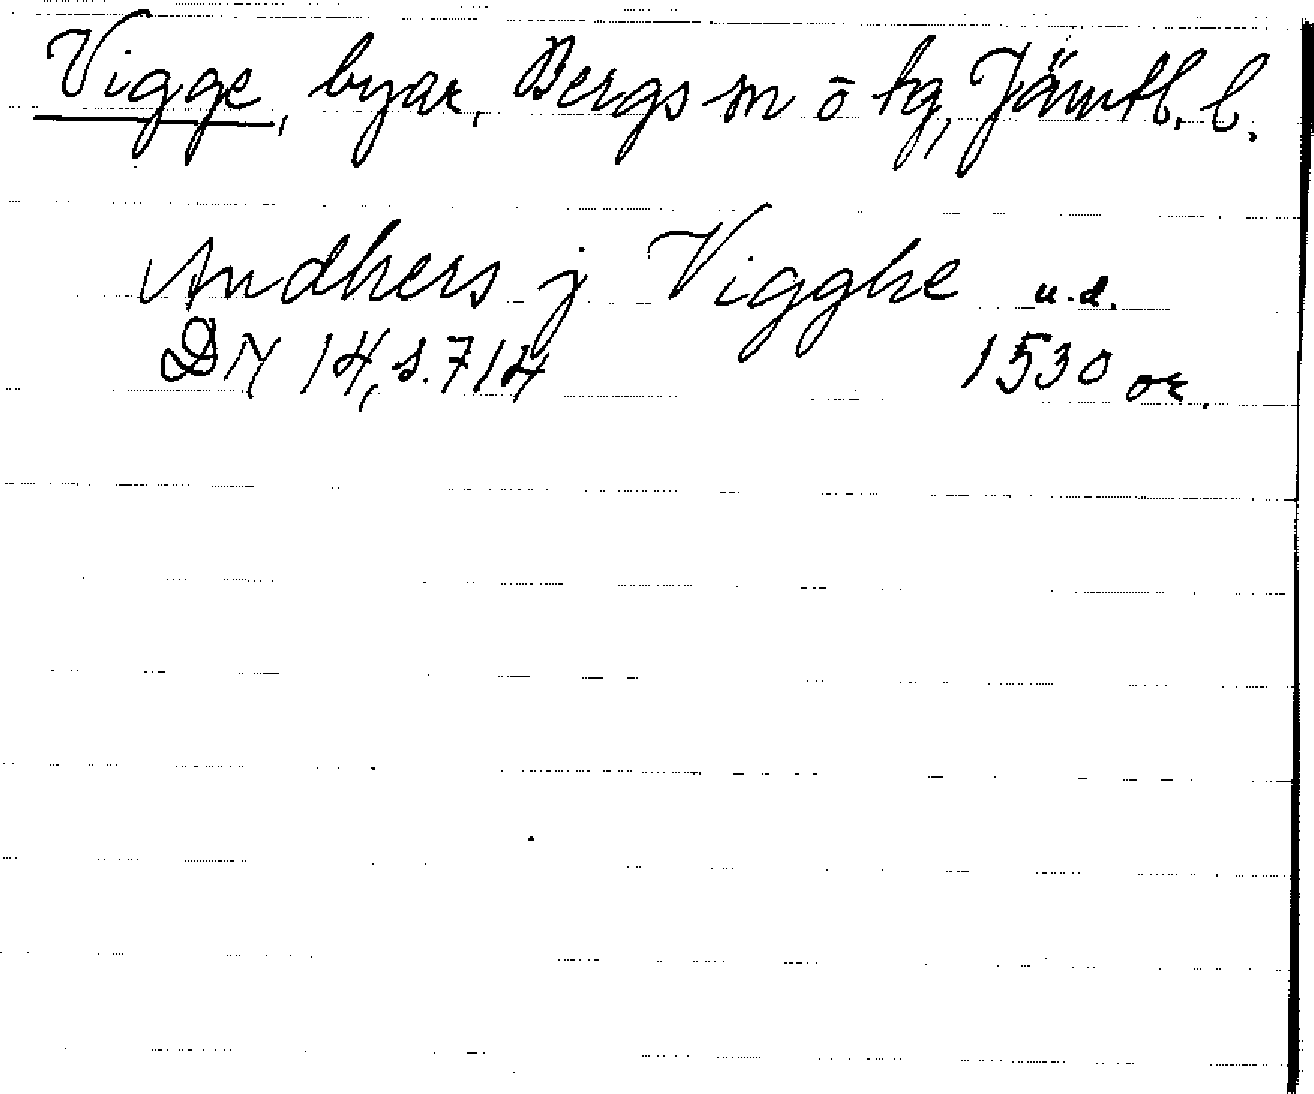 Vigge, byar, Bergs sn o tg, Jämtl. l.
Andhers j Vigghe u.d.
DN 14, s. 714 1530 or.